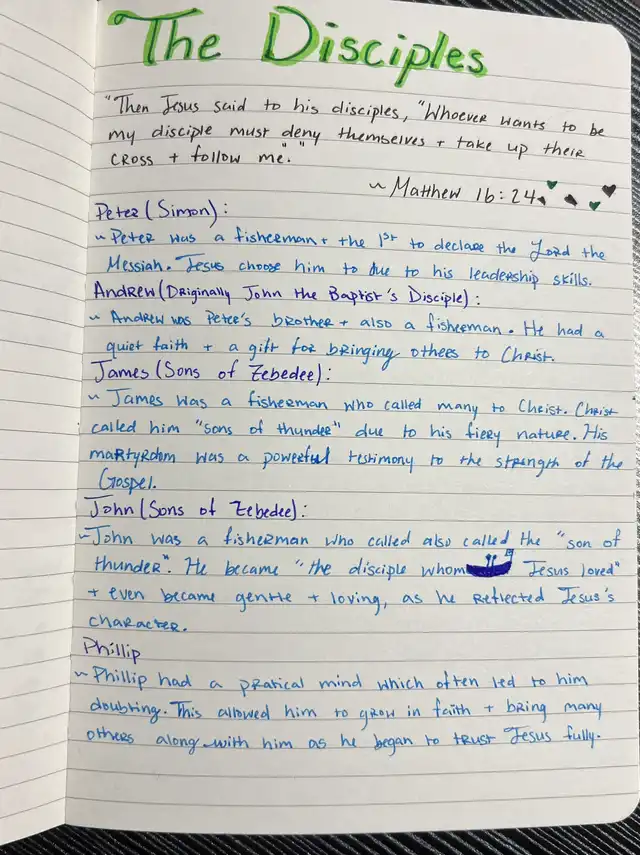 The Disciples
"Then Jesus said to his disciples, "Whoever wants to be
my disciple must deny themselves + take up their
cross + follow me"."
~ Matthew 16:24
Peter (Simon):
~ Peter was a fisherman + the 1st to declare the Lord the
Messiah. Jesus choose him to due to his leadership skills.
Andrew (Originally John the Baptist's Disciple):
~ Andrew was Peter's brother + also a fisherman. He had a
quiet faith + a gift for bringing others to Christ.
James (Sons of Zebedee):
~ James was a fisherman who called many to Christ. Christ
called him "sons of thunder" due to his fiery nature. His
martyrdom was a powerful testimony to the strength of the
Gospel.
John (Sons of Zebedee):
~John was a fisherman who called also called the "son of
thunder". He became "the disciple whom Jesus loved"
+ even became gentle + loving, as he reflected Jesus's
character.
Phillip
~ Phillip had a pratical mind which often led to him
doubting. This allowed him to grow in faith + bring many
others along with him as he began to trust Jesus fully.